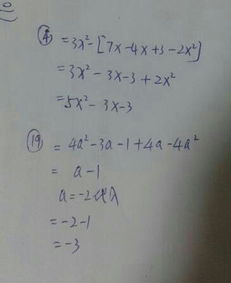 ④ =3x²-[7x-4x+3-2x²]
=3x²-3x-3+2x²
=5x²-3x-3
⑲ = 4a²-3a-1+4a-4a²
= a-1
a=-2代入
=-2-1
=-3